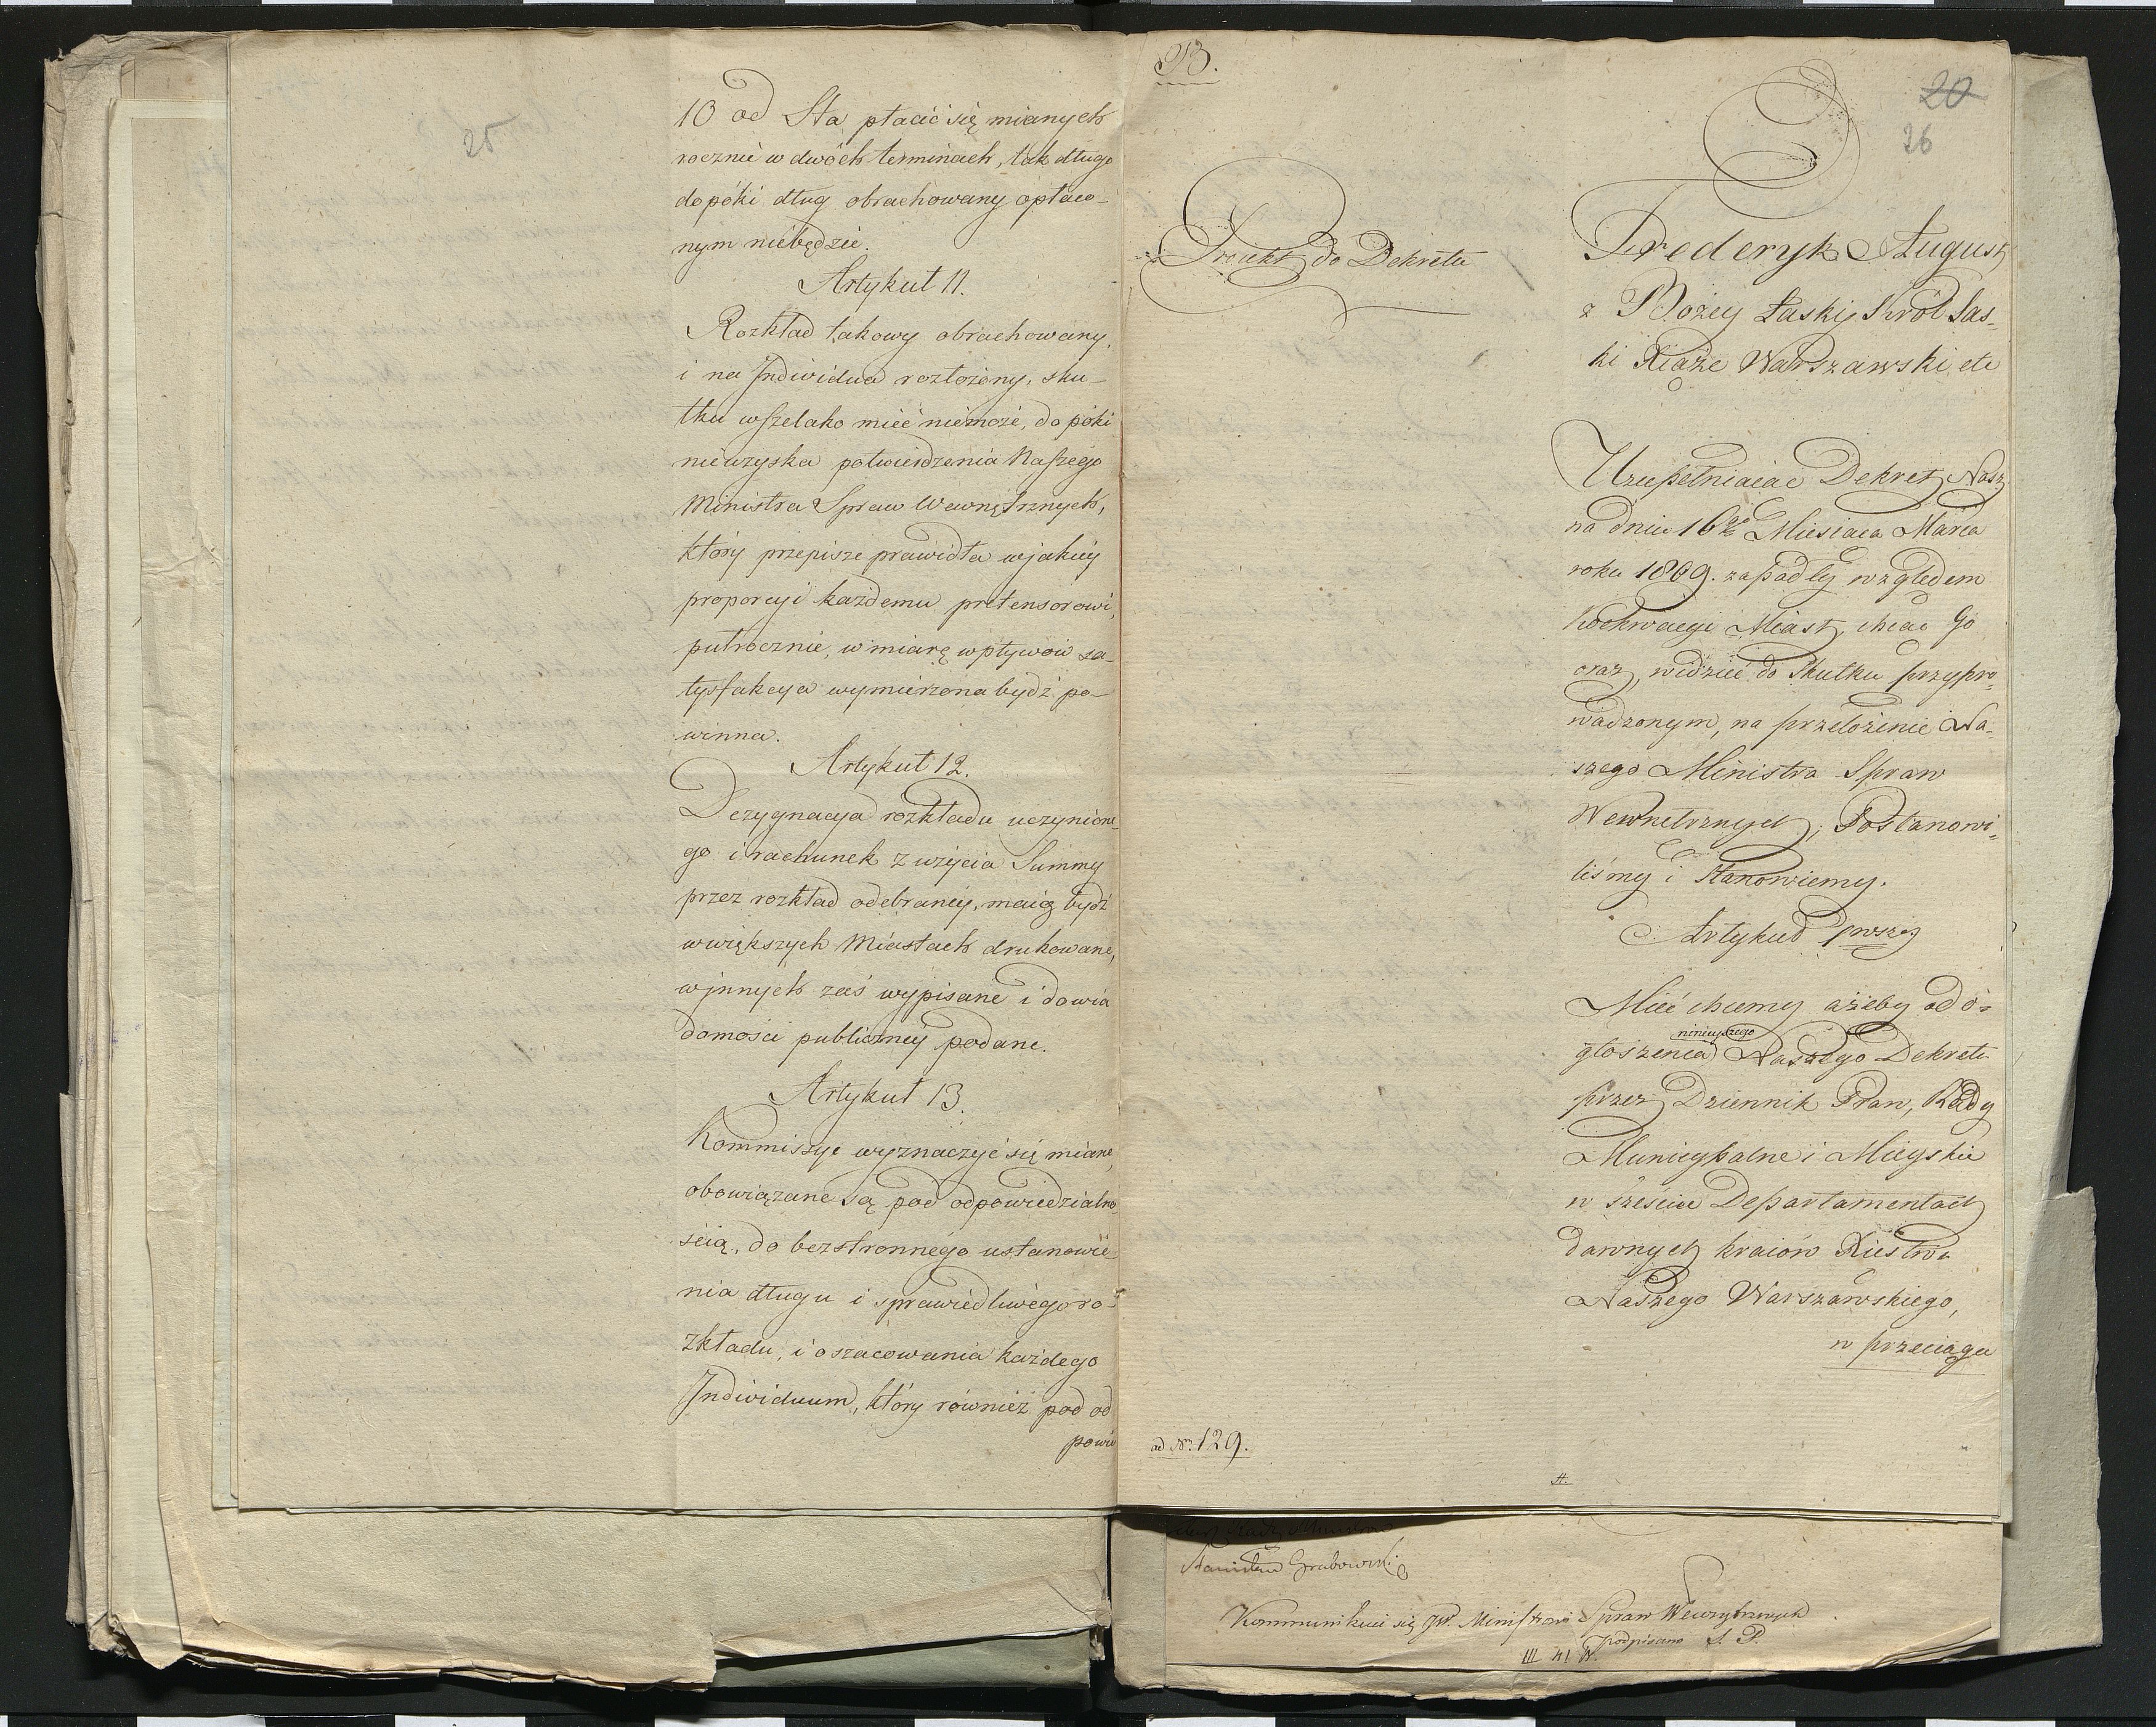 25
10 od Sta płacić się mianych
rocznie w dwóch terminach, tak długo
dopóki dług obrachowany opłaco-
nym niebędzie.
Artykuł 11.
Rozkład takowy obrachowany,
i na Indwidua rozłożony, sku-
tku wszelako mieć niemoże, do póki
nieuzyska potwierdzenia Naszego
Ministra Spraw Wewnętrznych,
który przepisze prawidła w jakiey
proporcyi każdemu pretensorowi,
pułrocznie, w miarę wpływów sa-
tysfakcya wymierzona bydź po-
winna.
Artykuł 12.
Dezygnacya rozkładu uczynione-
go i rachunek z użycia Summy
przez rozkład odebraney, maią bydź
w większych Miastach drukowane,
w jnnych zaś wypisane i do wia
domości publiczney podane.
Artykuł 13.
Kommissye wyznaczyć się miane,
obowiązane są pod odpowiedzialno-
ścią, do bezstronnego ustanowie-
nia długu i sprawiedliwego ro-
zkładu, i oszacowania każdego
Individuum, który również pod od
powie
B.
20
26
Proiekt do Dekretu
Frederyk August
z Bożey Łaski, Król Sas-
ki Xiąże Warszawski etc
Uzupełniaiąc Dekret Nasz
na dniu 16go Miesiąca Marca
roku 1809. zapadły względem
Rockwacyi Miast, chcąc Go
oraz, widzieć do Skutku przypro-
wadzonym, na przełożenie Na-
szego Ministra Spraw
Wewnetrznych; Postanowi-
liśmy i Stanowiemy.
Artykuł 1wszy
Mieć chcemy ażeby od o-
ninieyszego
głoszenia Naszego Dekretu
przez Dziennik Praw, Rady
Municypalne i Mieyskie
w sześciu Departamentach
dawnych kraiów Xięstwa
Naszego Warszawskiego,
w przeciągu
ad Nr. 129.
Stanisław Grabowski
Kommunikuie się JW. Ministrowi Spraw Wewnętrznych
podpisano S. P.
III 41 W.